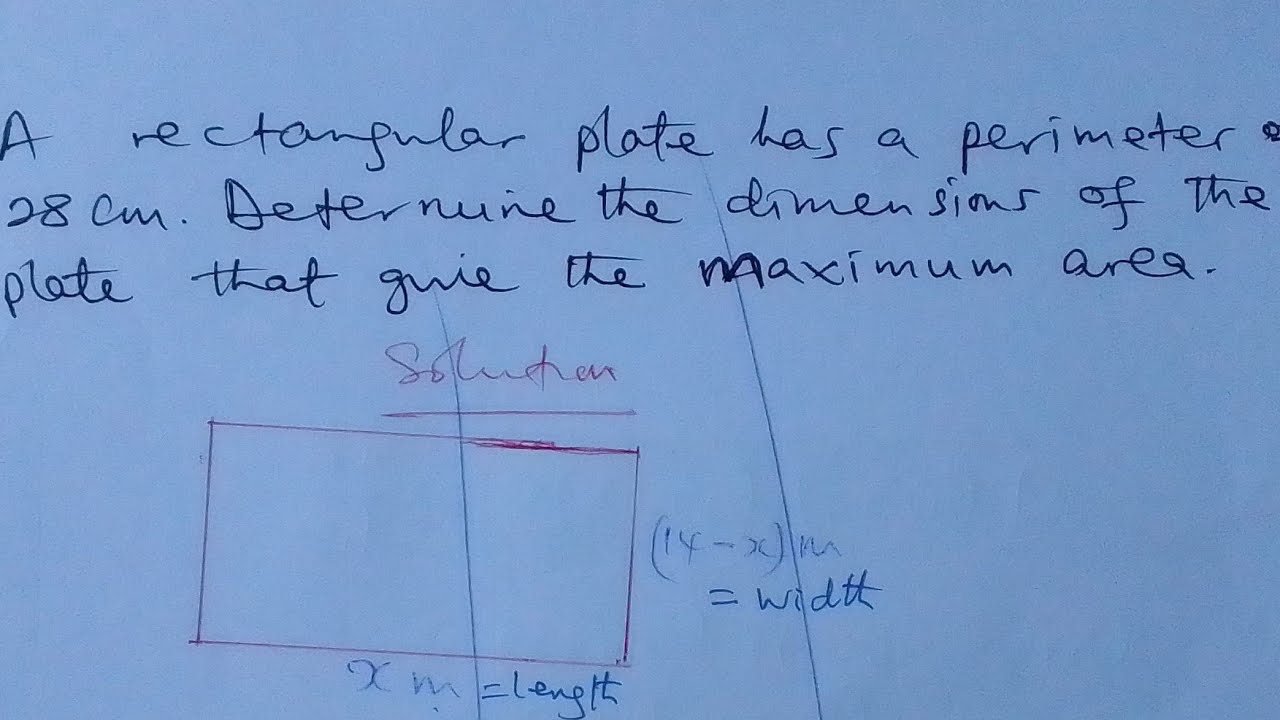 A rectangular plate has a perimeter
28 cm. Determine the dimensions of the
plate that give the maximum area.
Solution
(14 - x) m
= width
x m = length